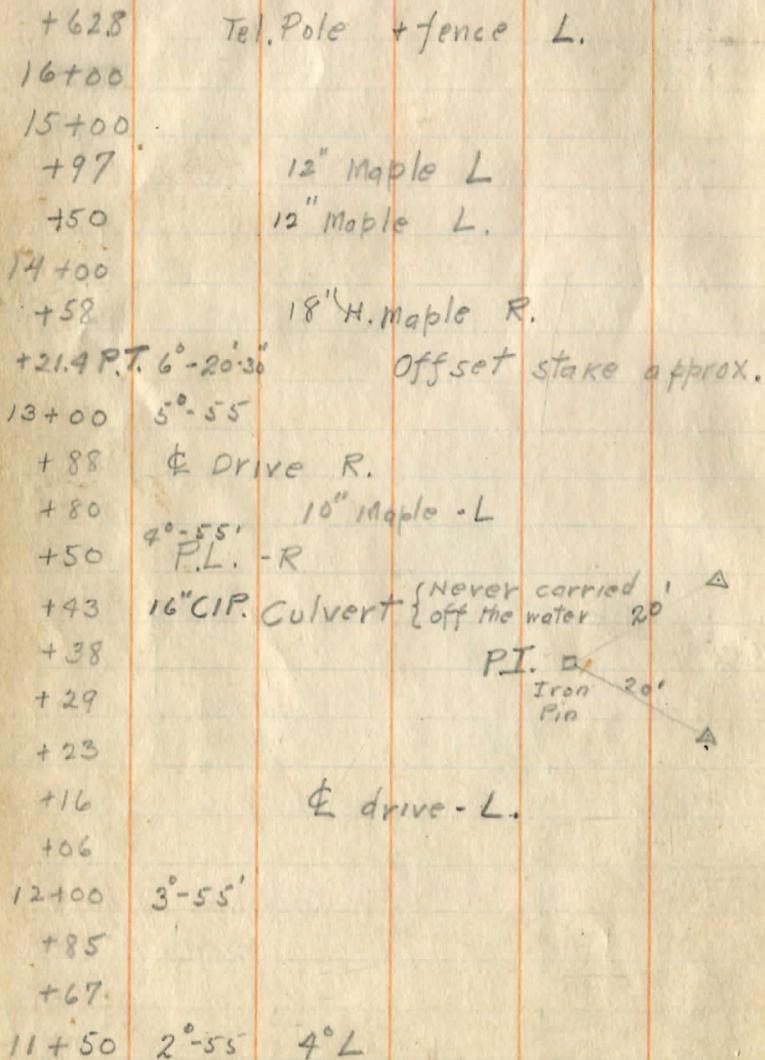 +62.8 Tel. Pole + fence L.
16+00
15+00
+97 12" Maple L
+50 12" Maple L.
14+00
+58 18" H. maple R.
+21.4 P.T. 6°-20'-30" Offset stake approx.
13+00 5°-55
+88 ℄ Drive R.
+80 10" Maple - L
4°-55'
+50 P.L. - R
+43 16" CIP. Culvert { Never carried off the water 20'
+38 P.I.
+29 Iron Pin 20'
+23
+16 ℄ drive - L.
+06
12+00 3°-55'
+85
+67
11+50 2°-55 4° L